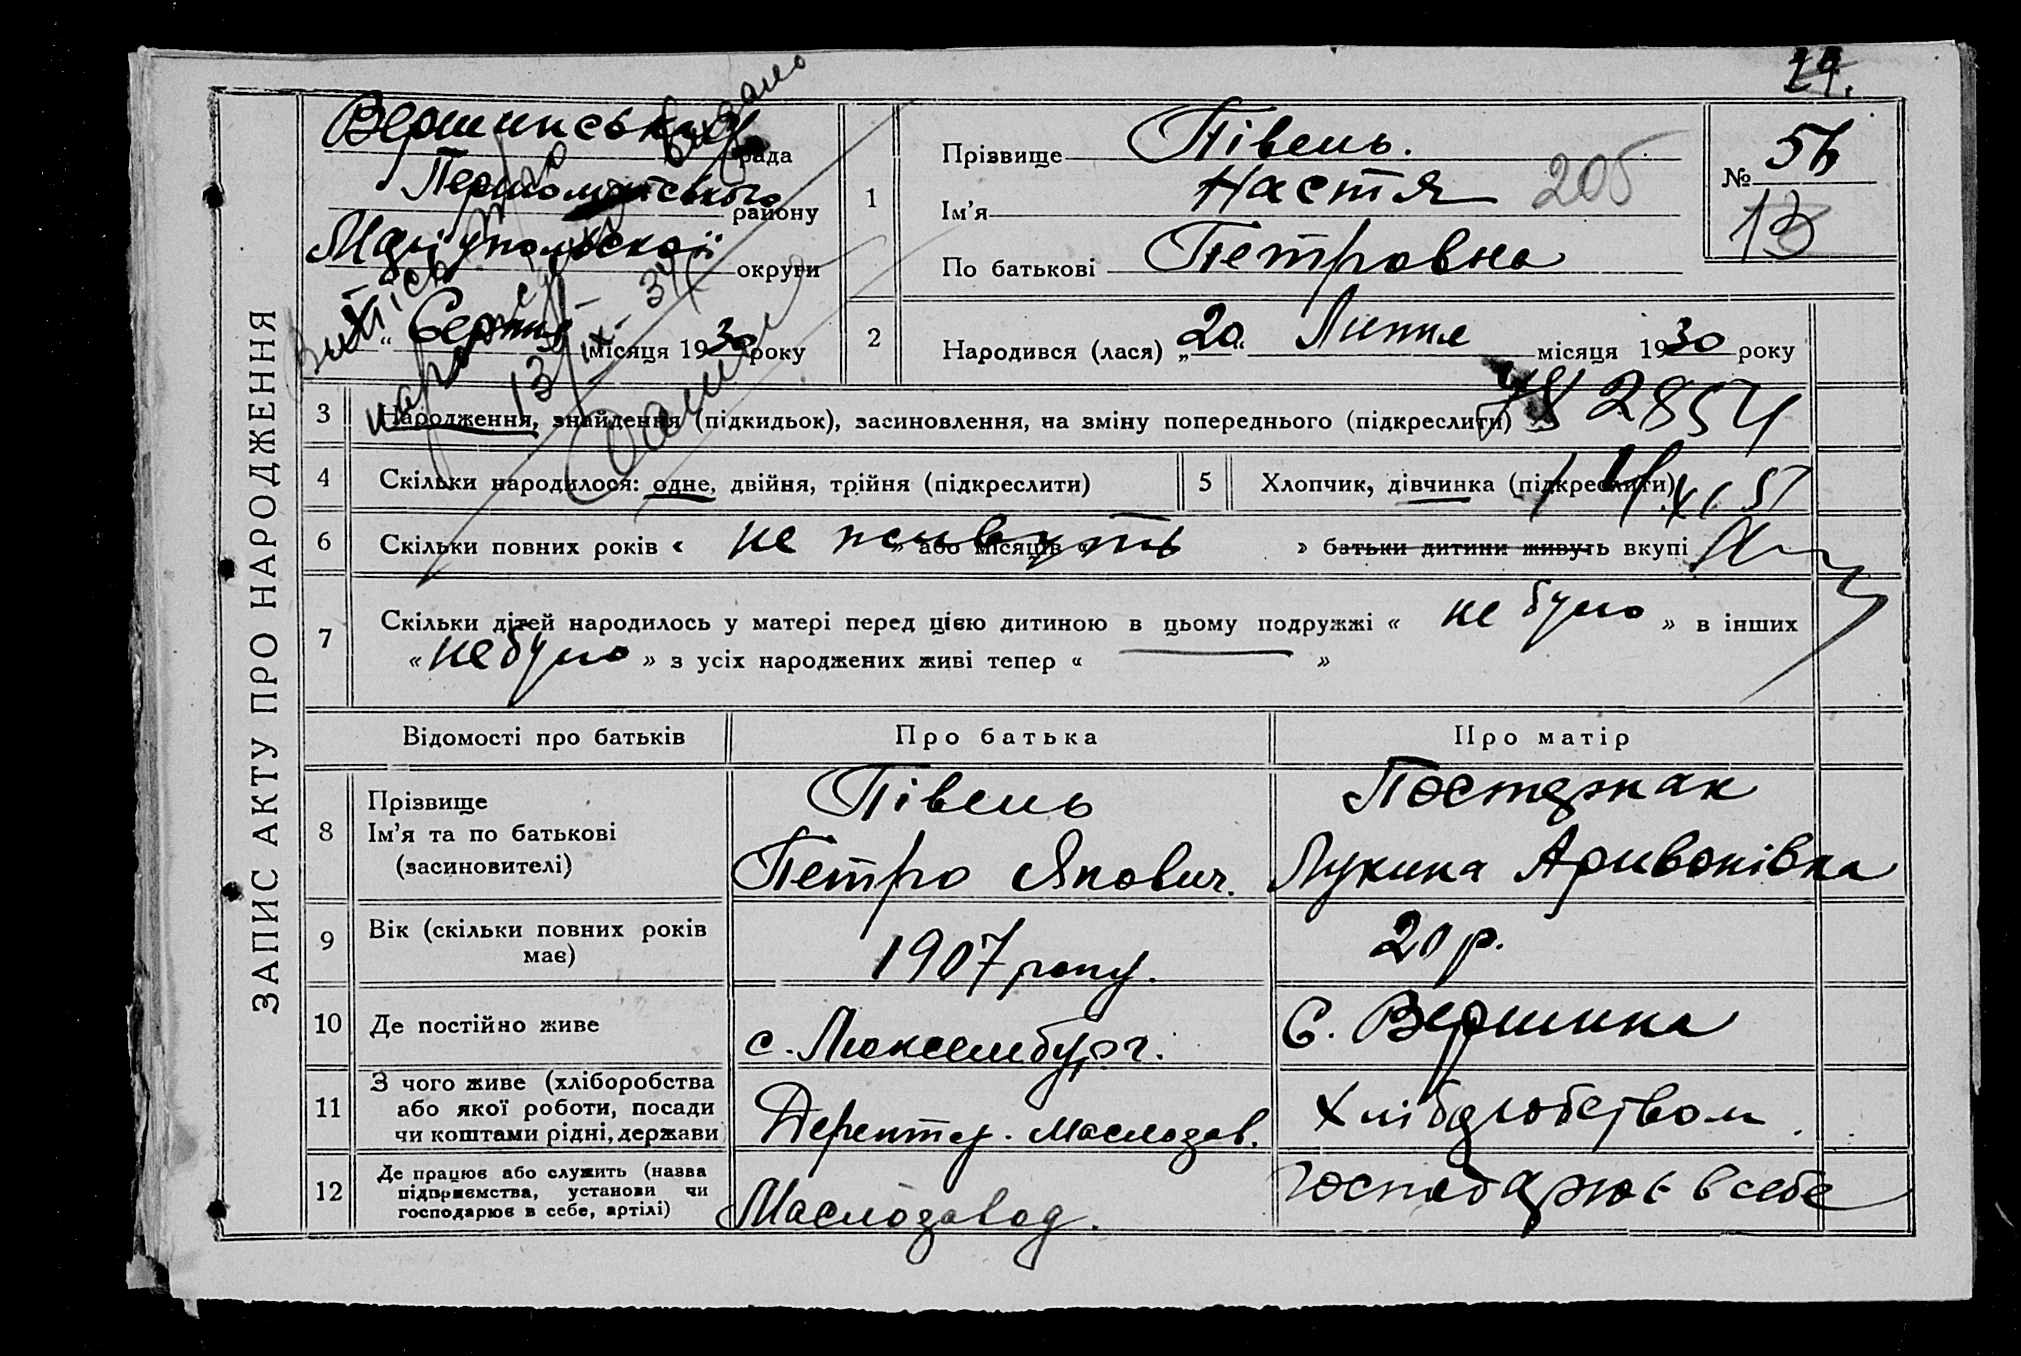 24.
ЗАПИС АКТУ ПРО НАРОДЖЕННЯ
Вершинська рада
Першомайського району
Маріупольскої округи
Серпня місяця 1930 року
Витісь про
видано
13/IX-34
1
Прізвище Півень.
Ім'я Настя 205
По батькові Петровна
№ 56
13
2
Народився (лася) „20“ Липня місяця 1930 року
3
Народження, знайдення (підкидьок), засиновлення, на зміну попереднього (підкреслити)
2854
4
Скільки народилося: одне, двійня, трійня (підкреслити)
5
Хлопчик, дівчинка (підкреслити)
XI 51
6
Скільки повних років « не живуть » або місяців « » батьки дитини живуть вкупі
7
Скільки дітей народилось у матері перед цією дитиною в цьому подружжі « не було » в інших
« не було » з усіх народжених живі тепер « — »
Відомості про батьків
Про батька
Про матір
8
Прізвище
Ім'я та по батькові
(засиновителі)
Півень
Петро Якович.
Постернак
Лукина Аривонівна
9
Вік (скільки повних років
має)
1907 року.
20 р.
10
Де постійно живе
с. Люксембург.
С. Вершина
11
З чого живе (хліборобства
або якої роботи, посади
чи коштами рідні, держави
Деректор. Маслозав.
Хліборобством.
12
Де працює або служить (назва
підприємства, установи чи
господарює в себе, артілі)
Маслозавод.
Господарює в себе